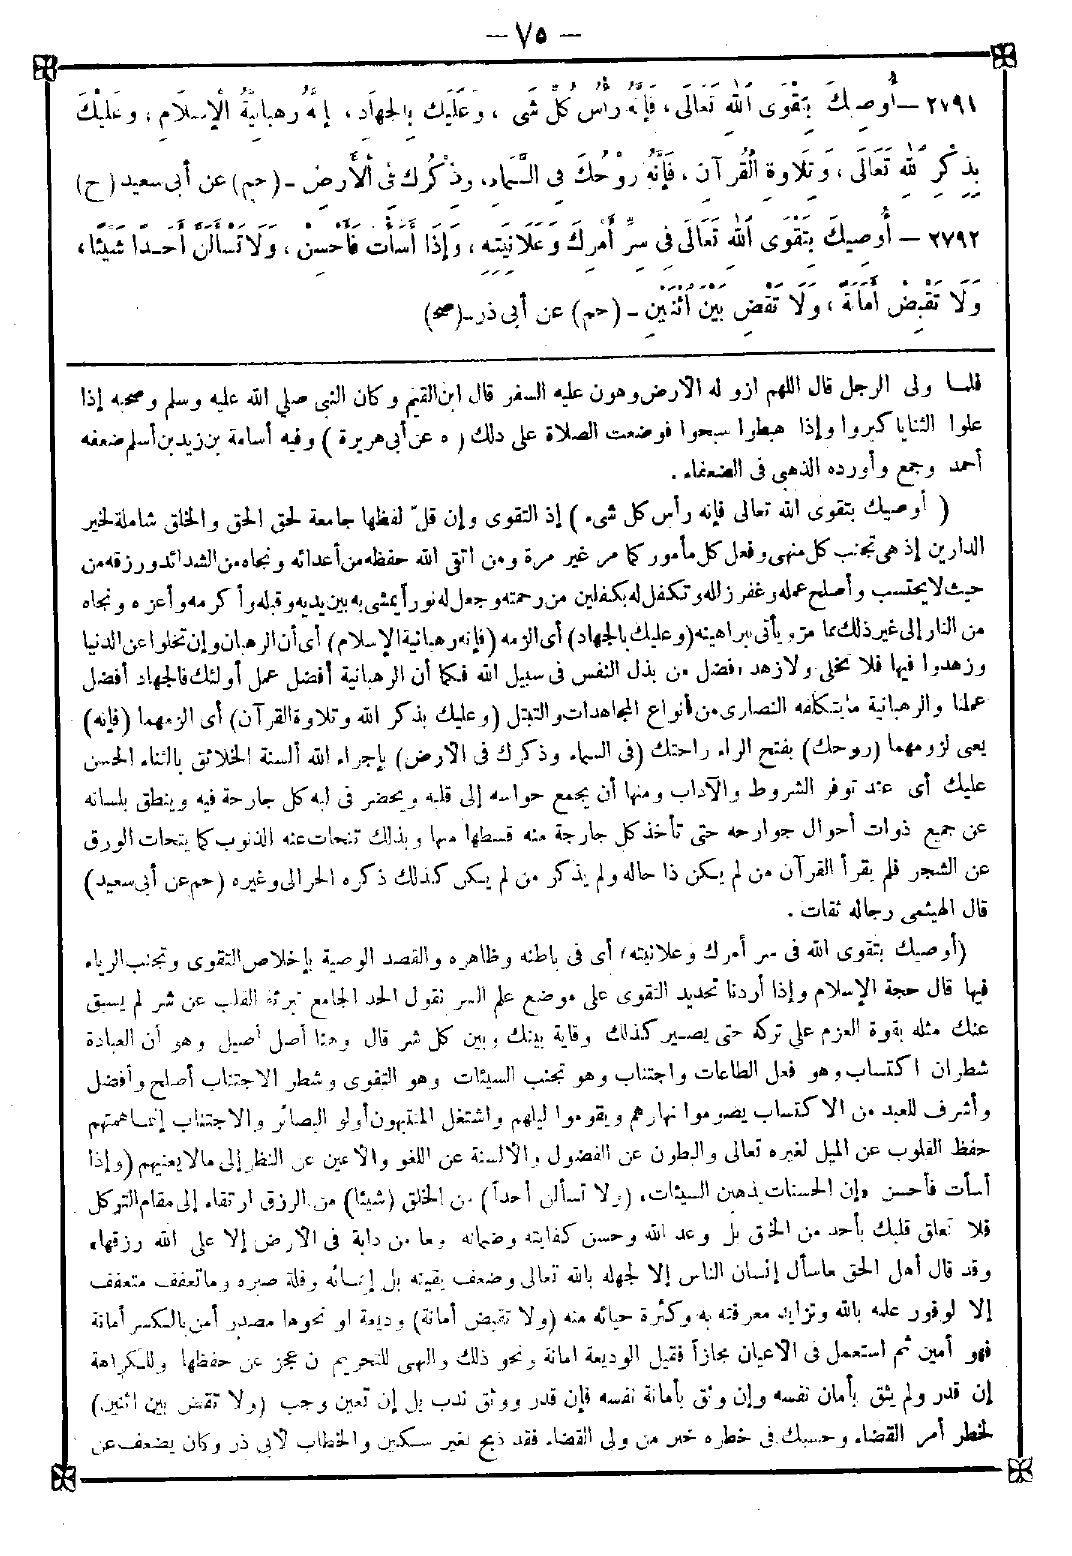 — ٧٥ —
٢٧٩١ — أُوصِيكَ بِتَقْوَى اللهِ تَعَالَى، فَإِنَّهُ رَأْسُ كُلِّ شَىْءٍ، وَعَلَيْكَ بِالْجِهَادِ، فَإِنَّهُ رَهْبَانِيَّةُ الْإِسْلَامِ، وَعَلَيْكَ
بِذِكْرِ اللهِ تَعَالَى، وَتِلَاوَةِ الْقُرْآنِ، فَإِنَّهُ رَوْحُكَ فِى السَّمَاءِ، وَذِكْرُكَ فِى الْأَرْضِ - (حم) عن أبى سعيد (ح)
٢٧٩٢ — أُوصِيكَ بِتَقْوَى اللهِ تَعَالَى فِى سِرِّ أَمْرِكَ وَعَلَانِيَتِهِ، وَإِذَا أَسَأْتَ فَأَحْسِنْ، وَلَا تَسْأَلَنَّ أَحَدًا شَيْئًا،
وَلَا تَقْبِضْ أَمَانَةً، وَلَا تَقْضِ بَيْنَ اثْنَيْنِ - (حم) عن أبى ذر - (صح)
فلما ولى الرجل قال اللهم ازو له الأرض وهون عليه السفر قال ابن القيم وكان النبى صلى الله عليه وسلم وصحبه إذا
علوا الثنايا كبروا وإذا هبطوا سبحوا فوضعت الصلاة على ذلك (ه عن أبى هريرة) وفيه أسامة بن زيد بن أسلم ضعفه
أحمد وجمع وأورده الذهبى فى الضعفاء.
(أوصيك بتقوى الله تعالى فإنه رأس كل شىء) إذ التقوى وإن قلّ لفظها جامعة لحق الحق والخلق شاملة لخير
الدارين إذ هى تجنب كل منهى وفعل كل مأمور كما مر غير مرة ومن اتقى الله حفظه من أعدائه ونجاه من الشدائد ورزقه من
حيث لا يحتسب وأصلح عمله وغفر زلله وتكفل له بكفلين من رحمته وجعل له نورا يمشى به بين يديه وقبله وأكرمه وأعزه ونجاه
من النار إلى غير ذلك مما مرّ ويأتى براهينه (وعليك بالجهاد) أى الزمه (فإنه رهبانية الإسلام) أى أن الرهبان وإن تخلوا عن الدنيا
وزهدوا فيها فلا تخلى ولا زهد أفضل من بذل النفس فى سبيل الله فكما أن الرهبانية أفضل عمل أولئك فالجهاد أفضل
عملنا والرهبانية ما يتكلفه النصارى من أنواع المجاهدات والتبتل (وعليك بذكر الله وتلاوة القرآن) أى الزمهما (فإنه)
يعى لزومهما (روحك) بفتح الراء راحتك (فى السماء وذكرك فى الأرض) بإجراء الله ألسنة الخلائق بالثناء الحسن
عليك أى عند توفر الشروط والآداب ومنها أن يجمع حواسه إلى قلبه ويحضر فى لبه كل جارحة فيه وينطق بلسانه
عن جميع ذوات أحوال جوارحه حتى تأخذ كل جارحة منه قسطها منها وبذلك تتحات عنه الذنوب كما يتحات الورق
عن الشجر فلم يقرأ القرآن من لم يكن ذا حاله ولم يذكر من لم يكن كذلك ذكره الحرالى وغيره (حم عن أبى سعيد)
قال الهيثمى رجاله ثقات.
(أوصيك بتقوى الله فى سر أمرك وعلانيته) أى فى باطنه وظاهره والقصد الوصية بإخلاص التقوى وتجنب الرياء
فيها قال حجة الإسلام وإذا أردنا تحديد التقوى على موضع علم السر نقول الحد الجامع تبرئة القلب عن شر لم يسبق
عنك مثله بقوة العزم على تركه حتى يصير كذلك وقاية بينك وبين كل شر قال وهنا أصل أصيل وهو أن العبادة
شطران اكتساب وهو فعل الطاعات واجتناب وهو تجنب السيئات وهو التقوى وشطر الاجتناب أصلح وأفضل
وأشرف للعبد من الاكتساب يصوموا نهارهم ويقوموا ليلهم واشتغل المنتبهون أولو البصائر والاجتناب إنما همتهم
حفظ القلوب عن الميل لغيره تعالى والبطون عن الفضول والألسنة عن اللغو والأعين عن النظر إلى ما لا يعنيهم (وإذا
أسأت فأحسن) وإن الحسنات يذهبن السيئات، (ولا تسألن أحداً) من الخلق (شيئا) من الرزق ارتقاء إلى مقام التوكل
فلا تعلق قلبك بأحد من الخلق بل وعد الله وحسن كفايته وضمانه وما من دابة فى الأرض إلا على الله رزقها،
وقد قال أهل الحق ما سأل إنسان الناس إلا لجهله بالله تعالى وضعف يقينه بل إيمانه وقلة صبره وما تعفف متعفف
إلا لوفور علمه بالله وتزايد معرفته به وكثرة حيائه منه (ولا تقبض أمانة) وديعة أو نحوها مصدر أمن بالكسر أمانة
فهو أمين ثم استعمل فى الأعيان مجازاً فقيل الوديعة امانة ونحو ذلك والنهى للتحريم إن عجز عن حفظها وللكراهة
إن قدر ولم يثق بأمان نفسه وإن وثق بأمانة نفسه فإن قدر ووثق ندب بل إن تعين وجب (ولا تقض بين اثنين)
لخطر أمر القضاء وحسبك فى خطره خبر من ولى القضاء فقد ذبح بغير سكين والخطاب لأبى ذر وكان يضعف عن